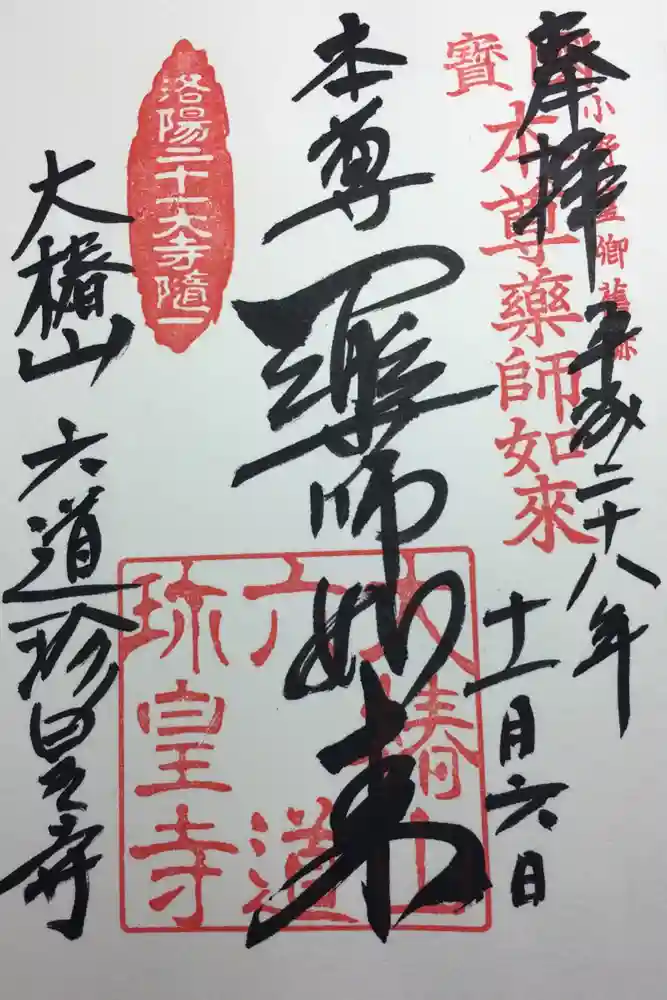 奉拝 平成二十八年
十一月六日
寳
本尊薬師如來
本尊
薬師如来
洛陽二十一大寺隨一
大椿山
六道
珎皇寺
大椿山 六道珍皇寺